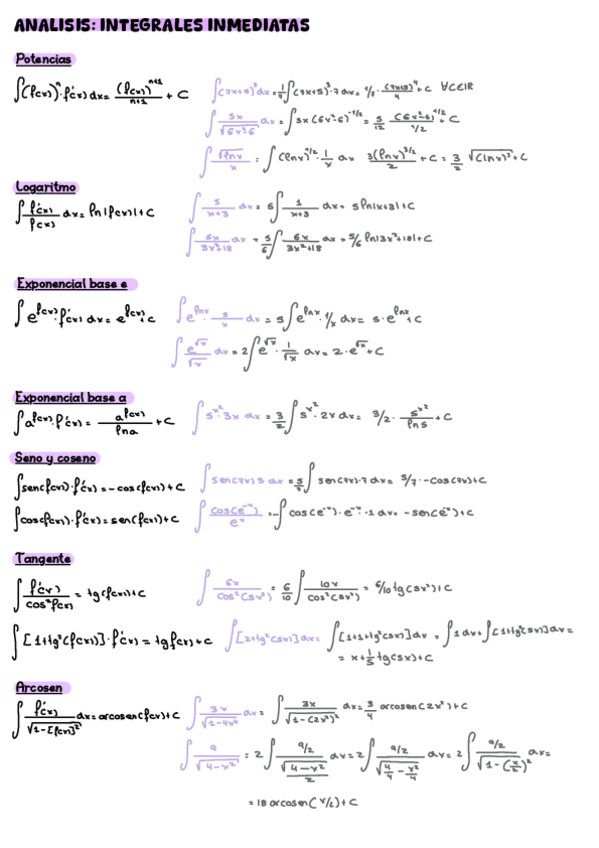 ANALISIS: INTEGRALES INMEDIATAS
Potencias
∫(f(x))ⁿ·f'(x) dx = (f(x))ⁿ⁺¹/n+1 + C
∫(7x+5)³dx = 1/7∫(7x+5)³·7 dx = 1/7·(7x+5)⁴/4 + C ∀C∈ℝ
∫5x/√(6x²-6) dx = ∫5x(6x²-6)^(-1/2) = 5/12 (6x²-6)^(1/2)/(1/2) + C
∫√(lnx)/x = ∫(lnx)^(1/2)·1/x dx 3(lnx)^(3/2)/2 + C = 3/2 √(lnx)³ + C
Logaritmo
∫f'(x)/f(x) dx = ln|f(x)| + C
∫5/(x+3) dx = 5∫1/(x+3) dx = 5 ln|x+3| + C
∫5x/(3x²+18) dx = 5/6∫6x/(3x²+18) dx = 5/6 ln|3x²+18| + C
Exponencial base e
∫e^f(x)·f'(x) dx = e^f(x) + C
∫e^lnx·5/x dx = 5∫e^lnx·1/x dx = 5·e^lnx + C
∫e^√x/√x dx = 2∫e^√x·1/√x dx = 2·e^√x + C
Exponencial base a
∫a^f(x)·f'(x) = a^f(x)/ln a + C
∫5^x²·3x dx = 3/2∫5^x²·2x dx = 3/2·5^x²/ln5 + C
Seno y coseno
∫sen(f(x))·f'(x) = -cos(f(x)) + C
∫sen(7x)5 dx = 5/7∫sen(7x)·7 dx = 5/7·-cos(7x) + C
∫cos(f(x))·f'(x) = sen(f(x)) + C
∫cos(e^-x)/e^x = -∫cos(e^-x)·e^-x·-1 dx = -sen(e^-x) + C
Tangente
∫f'(x)/cos²f(x) = tg(f(x)) + C
∫6x/cos²(5x²) = 6/10∫10x/cos²(5x²) = 6/10 tg(5x²) + C
∫[1+tg²(f(x))]·f'(x) = tg f(x) + C
∫[2+tg²(5x)] dx = ∫[1+1+tg²(5x)] dx = ∫1 dx + ∫[1+tg²(5x)] dx =
= x + 1/5 tg(5x) + C
Arcosen
∫f'(x)/√(1-[f(x)]²) dx = arcosen(f(x)) + C
∫3x/√(1-4x⁴) dx = ∫3x/√(1-(2x²)²) dx = 3/4 arcosen(2x²) + C
∫9/√(4-x²) = 2∫(9/2)/(√(4-x²)/2) dx = 2∫(9/2)/√(4/4-x²/4) dx = 2∫(9/2)/√(1-(x/2)²) dx =
= 18 arcosen(x/2) + C